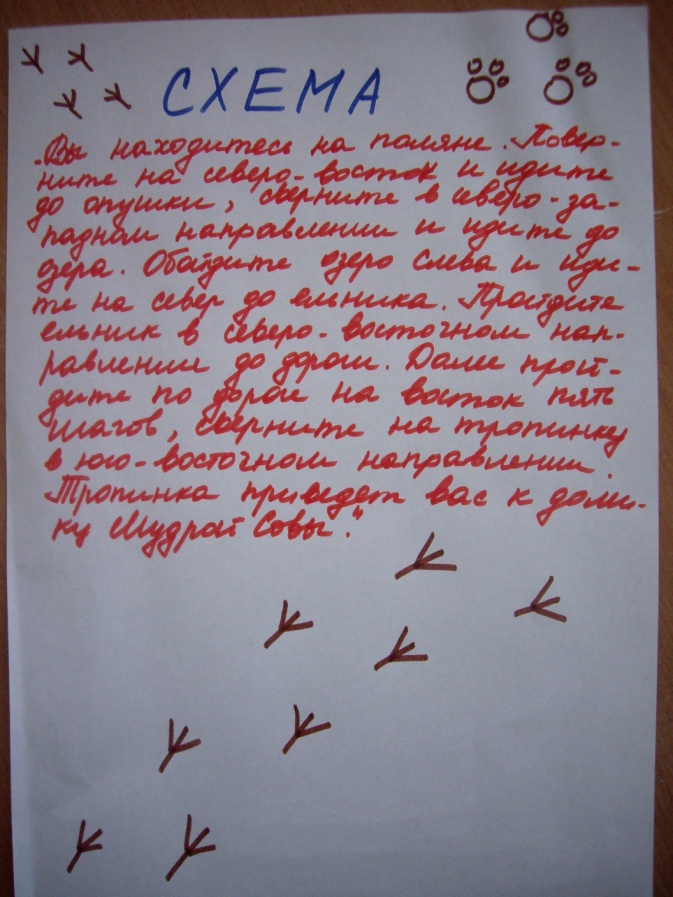 СХЕМА
„Вы находитесь на поляне. Повер-
ните на северо-восток и идите
до опушки, сверните в северо-за-
падном направлении и идите до
озера. Обойдите озеро слева и иди-
те на север до ельника. Пройдите
ельник в северо-восточном нап-
равлении до дороги. Далее прой-
дите по дороге на восток пять
шагов, сверните на тропинку
в юго-восточном направлении.
Тропинка приведет вас к доми-
ку Мудрой Совы."